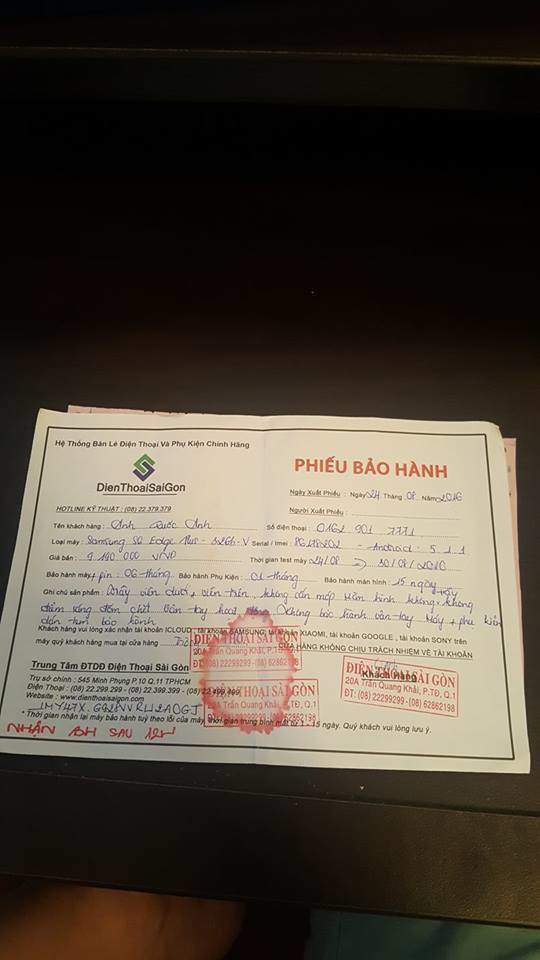 Hệ Thống Bán Lẻ Điện Thoại Và Phụ Kiện Chính Hãng
DienThoaiSaiGon
HOTLINE KỸ THUẬT : (08) 22.379.379
PHIẾU BẢO HÀNH
Ngày Xuất Phiếu : Ngày 24 Tháng 08 Năm 2016
Người Xuất Phiếu :
Tên khách hàng : Anh Quốc Anh Số điện thoại : 0162 901 7771
Loại máy : Samsung S6 Edge Plus - 32Gb - V Serial / Imei : - Android 5.1.1
Giá bán : 9.140.000 VNĐ Thời gian test máy 24/08 30/08/2016
Bảo hành máy + pin : 06 tháng Bảo hành Phụ Kiện : 01 tháng Bảo hành màn hình : 15 ngày
Ghi chú sản phẩm : Máy viền dưới + viền trên không cấn móp Màn hình không
điểm sáng đốm chết Vân tay hoạt động Không bảo hành vân tay Máy + phụ kiện
dán tem bảo hành
Khách hàng vui lòng xác nhận tài khoản ICLOUD, tài khoản SAMSUNG, tài khoản XIAOMI, tài khoản GOOGLE , tài khoản SONY trên
máy quý khách hàng mua tại cửa hàng HÀNG KHÔNG CHỊU TRÁCH NHIỆM VỀ TÀI KHOẢN
Trung Tâm ĐTDĐ Điện Thoại Sài Gòn
Khách Hàng
Trụ sở chính : 545 Minh Phụng P.10 Q.11 TPHCM
Điện Thoại : (08) 22.299.299 - (08) 22.399.399 - (08) 22.499.499
Website : www.dienthoaisaigon.com
* Thời gian nhận lại máy bảo hành tuỳ theo lỗi của máy, thời gian trung bình mất từ 1 - 15 ngày. Quý khách vui lòng lưu ý.
NHẬN BH SAU 12H
ĐIỆN THOẠI SÀI GÒN
20A Trần Quang Khải, P.TĐ, Q.1
ĐT: (08) 22299299 - (08) 62862198
ĐIỆN THOẠI SÀI GÒN
20A Trần Quang Khải, P.TĐ, Q.1
ĐT: (08) 22299299 - (08) 62862198
ĐIỆN THOẠI SÀI GÒN
20A Trần Quang Khải, P.TĐ, Q.1
ĐT: (08) 22299299 - (08) 62862198